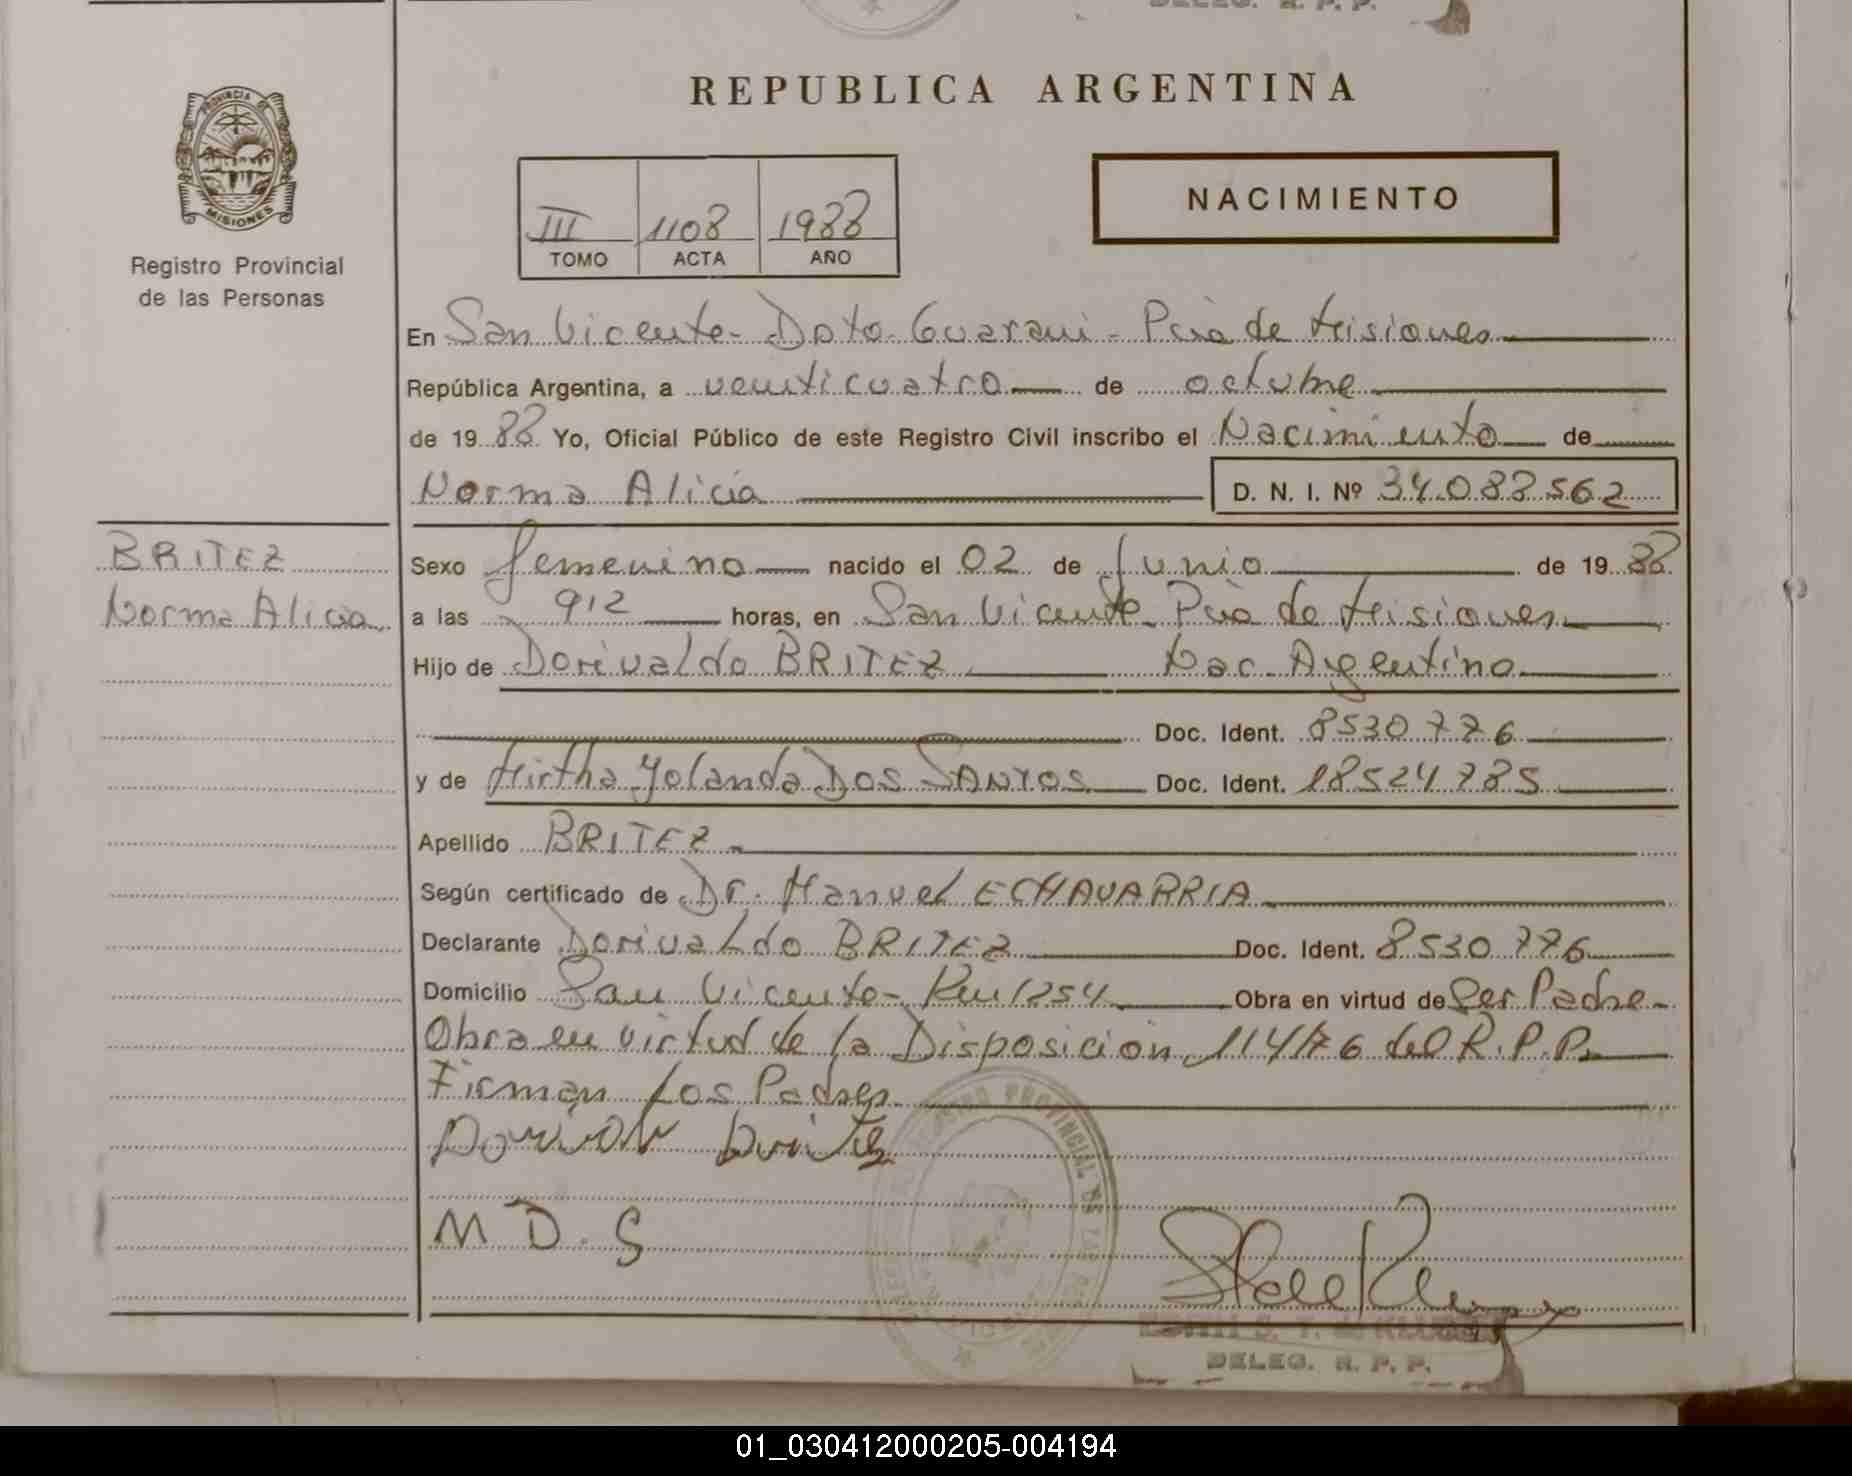 DELEG. R. P. P.
REPUBLICA ARGENTINA
PROVINCIA DE
MISIONES
Registro Provincial
de las Personas
NACIMIENTO
III 1108 1988
TOMO ACTA AÑO
En San Vicente - Dpto Guarani - Pcia de Misiones
República Argentina, a veinticuatro de octubre
de 1988 Yo, Oficial Público de este Registro Civil inscribo el Nacimiento de
Norma Alicia D. N. I. Nº 34.088562
BRITEZ
Norma Alicia
Sexo femenino nacido el 02 de Junio de 1988
a las 912 horas, en San Vicente - Pcia de Misiones
Hijo de Dorivaldo BRITEZ Nac. Argentino
Doc. Ident. 8530776
y de Mirtha Yolanda DOS SANTOS Doc. Ident. 18524785
Apellido BRITEZ
Según certificado de Dr. Manuel ECHAVARRIA
Declarante Dorivaldo BRITEZ Doc. Ident. 8530776
Domicilio San Vicente - Km 1254 Obra en virtud de Ser Padre
Obra en virtud de la Disposición 114/76 del R.P.P.
Firman Los Padres
M D. S
DELEG. R. P. P.
01_030412000205-004194